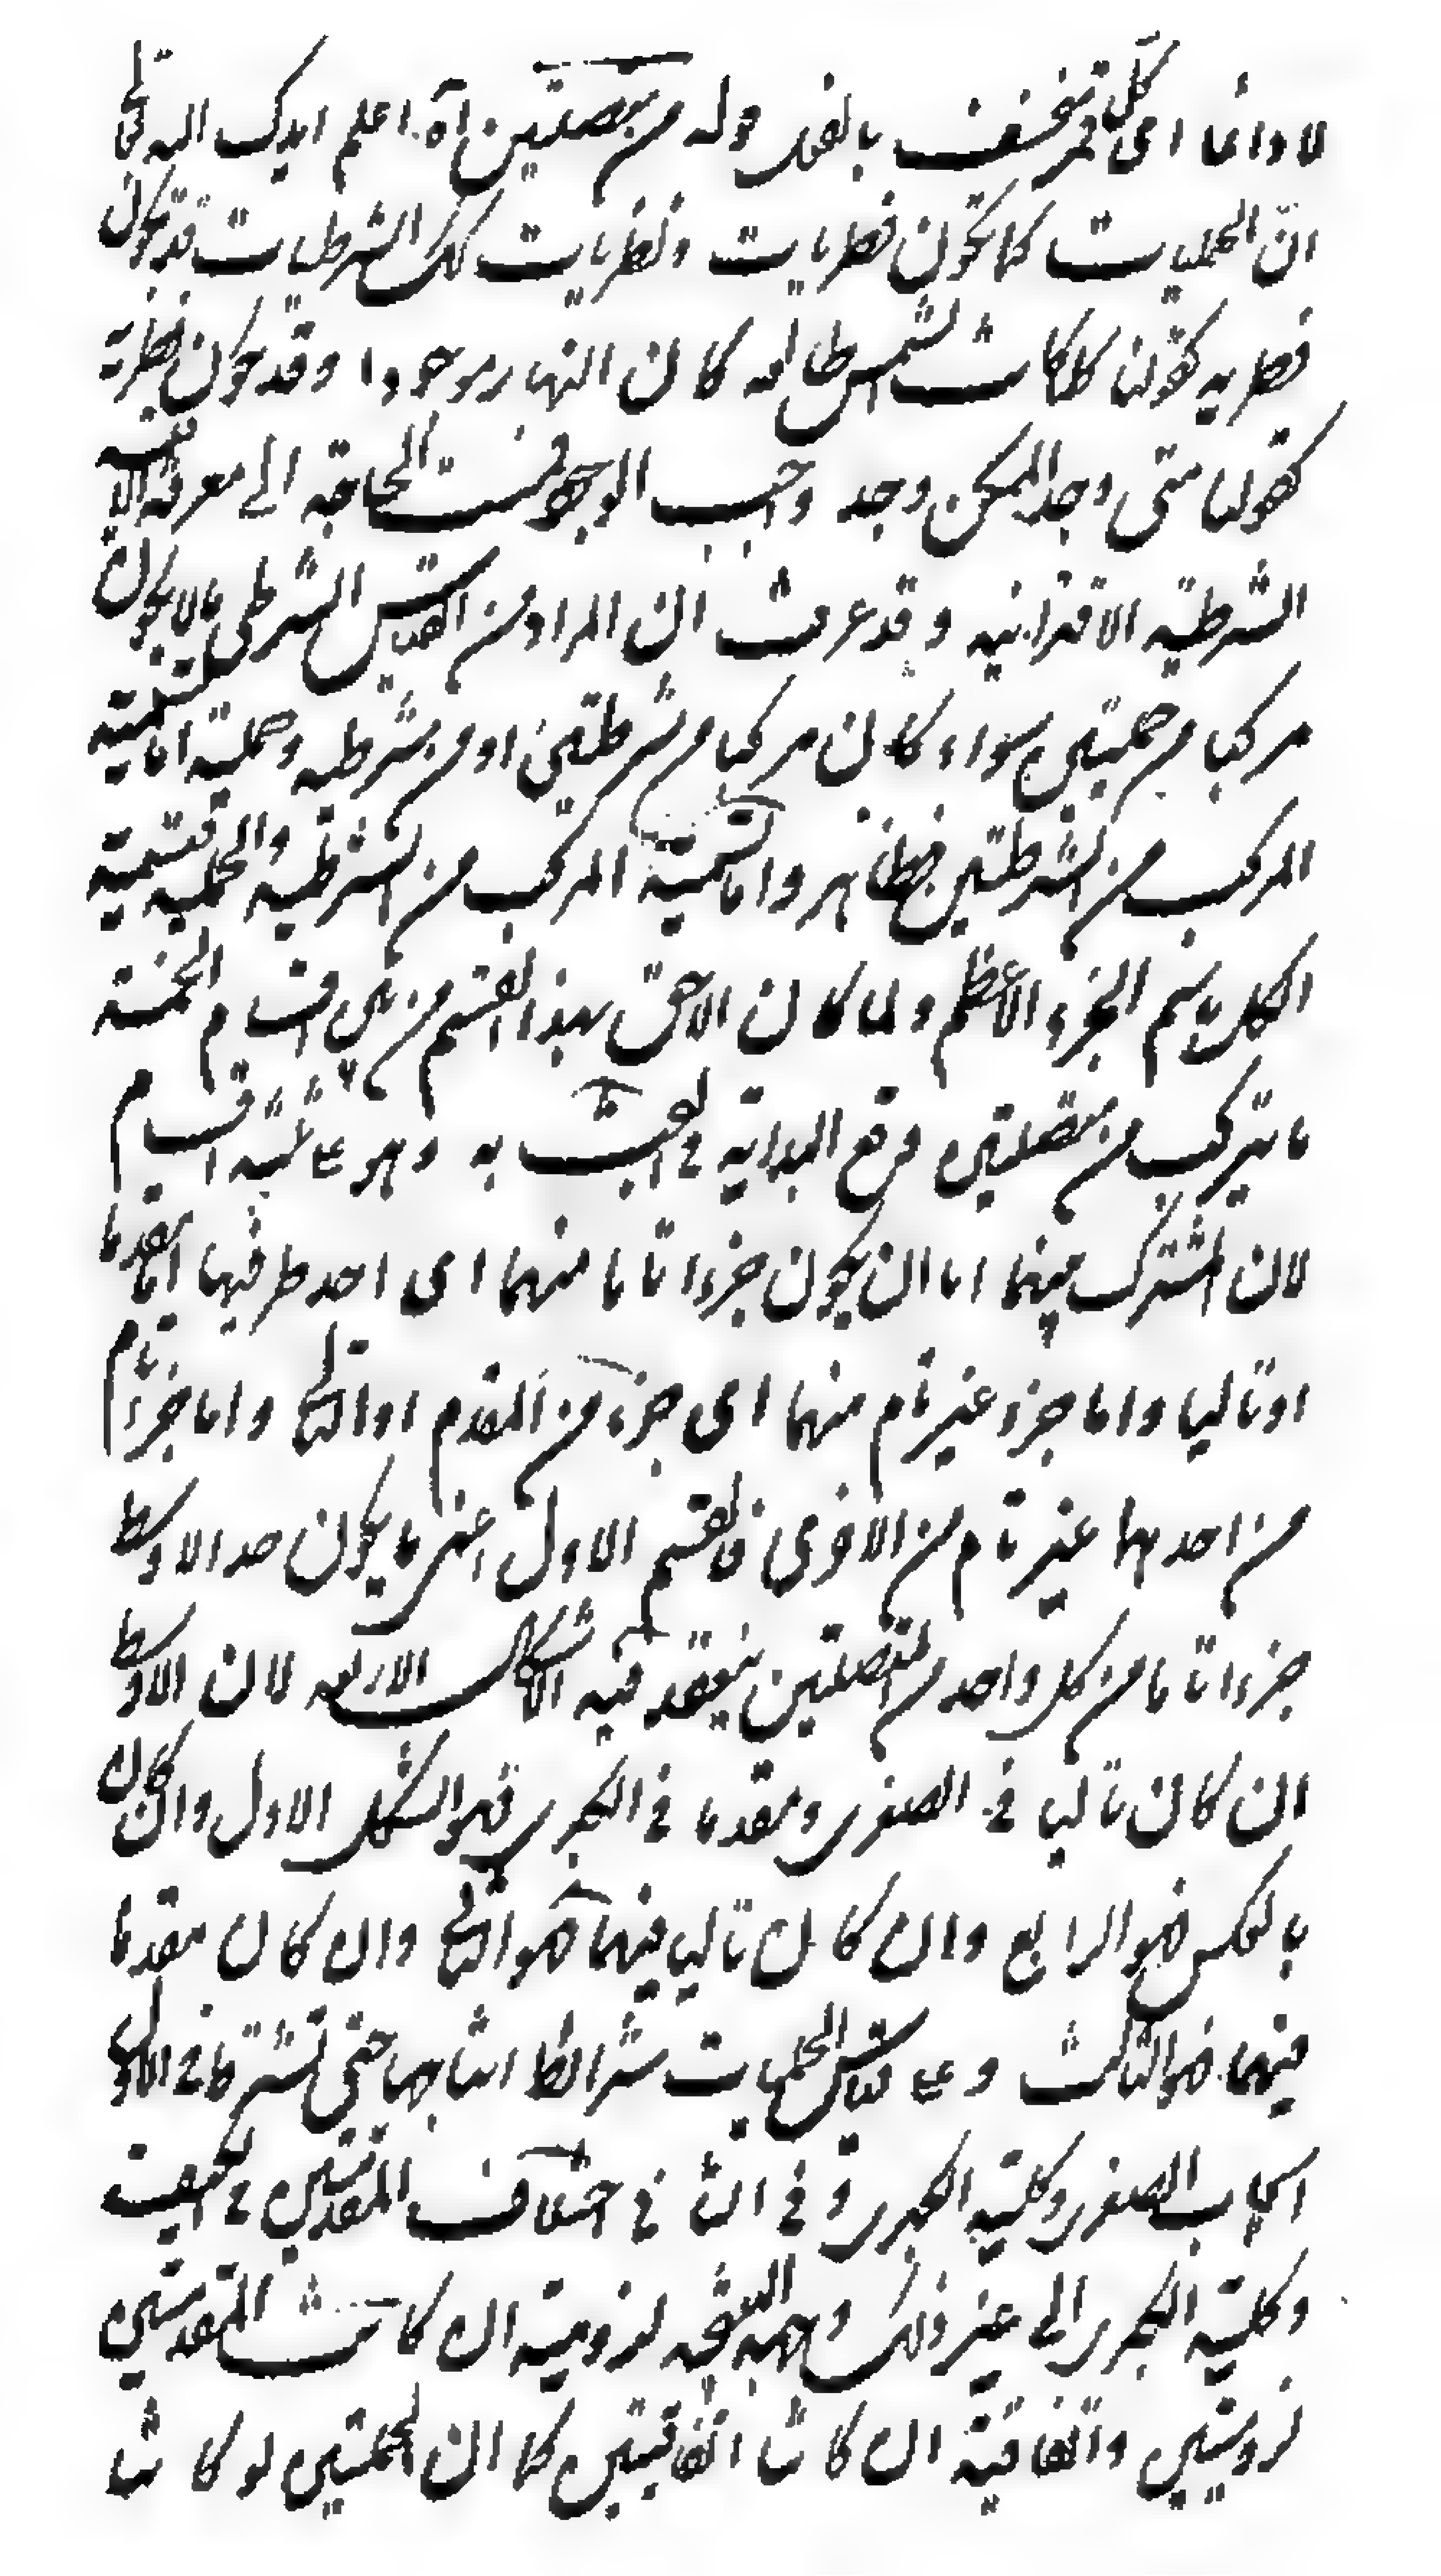 لا دائما اى كل قمر منخسف بالفعل قوله من متصلتين آه اعلم ايدك الله تعالى
ان الحمليات كما تكون فطريات ونظريات كك الشرطيات قد تكون
فطرية كقولنا كلما كانت الشمس طالعة كان النهار موجودا وقد تكون نظرية
كقولنا متى وجد الممكن وجد واجب الوجود فمست الحاجة الى معرفة الاقيسة
الشرطية الاقترانية وقد عرفت ان المراد من القياس الشرطى ما لا يكون
مركبا من حمليتين سواء كان مركبا من شرطيتين او من شرطية وحملية اما تسمية
المركب من الشرطيتين فظاهر واما تسمية المركب من الشرطية والحملية فتسمية
الكل باسم الجزء الاعظم ولما كان الاحق بهذا القسم من بين اقسام الخمسة
ما يتركب من متصلتين وقع البداية فى البحث به وهو على ثلثة اقسام
لان المشترك بينهما اما ان يكون جزءا تاما منهما اى احد طرفيها اما مقدما
او تاليا واما جزء غير تام منهما اى جزء من المقدم او التالى واما جزء تام
من احدهما غير تام من الاخرى فالقسم الاول اعنى ما يكون حد الاوسط
جزءا تاما من كل واحد من المتصلتين ينعقد فيه الاشكال الاربعة لان الاوسط
ان كان تاليا فى الصغرى ومقدما فى الكبرى فهو الشكل الاول وان كان
بالعكس فهو الرابع وان كان تاليا فيهما فهو الثانى وان كان مقدما
فيهما فهو الثالث وعلى قياس الحمليات شرائط انتاجها حتى تشترط فى الاول
ايجاب الصغرى وكلية الكبرى وفى الثانى اختلاف المقدمتين فى الكيف
وكلية الكبرى الى غير ذلك وجهة النتيجة لزومية ان كانت المقدمتين
لزوميتين واتفاقية ان كانتا اتفاقيتين كما ان الحمليتين لو كانتا